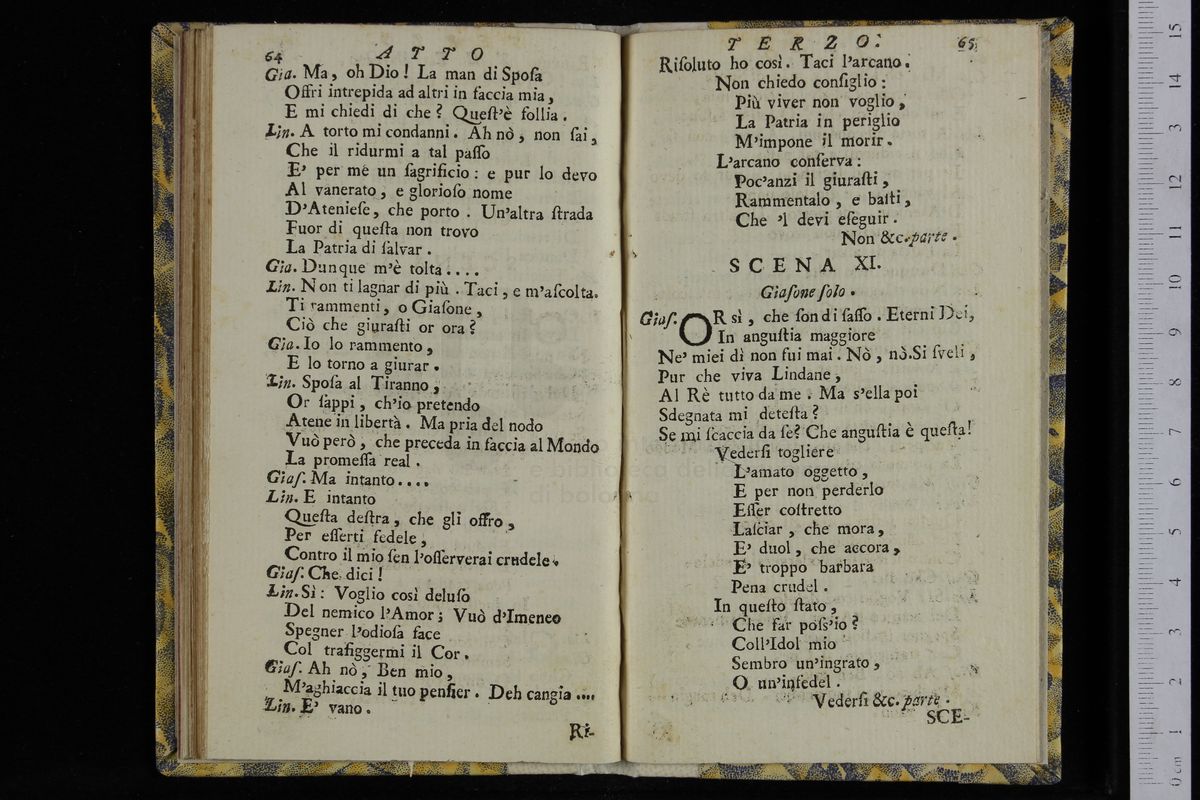 64 ATTO
Gia. Ma, oh Dio! La man di Sposa
Offri intrepida ad altri in faccia mia,
E mi chiedi di che? Quest'è follia.
Lin. A torto mi condanni. Ah nò, non sai,
Che il ridurmi a tal passo
E' per me un sagrificio: e pur lo devo
Al vanerato, e glorioso nome
D'Ateniese, che porto. Un'altra strada
Fuor di questa non trovo
La Patria di salvar.
Gia. Dunque m'è tolta....
Lin. Non ti lagnar di più. Taci, e m'ascolta.
Ti rammenti, o Giasone,
Ciò che giurasti or ora?
Gia. Io lo rammento,
E lo torno a giurar.
Lin. Sposa al Tiranno,
Or sappi, ch'io pretendo
Atene in libertà. Ma pria del nodo
Vuò però, che preceda in faccia al Mondo
La promessa real.
Gias. Ma intanto....
Lin. E intanto
Questa destra, che gli offro,
Per esserti fedele,
Contro il mio sen l'osserverai crudele.
Gias. Che dici!
Lin. Sì: Voglio così deluso
Del nemico l'Amor; Vuò d'Imeneo
Spegner l'odiosa face
Col trafiggermi il Cor.
Gias. Ah nò, Ben mio,
M'aghiaccia il tuo pensier. Deh cangia....
Lin. E' vano.
Ri-
TERZO. 65
Risoluto ho così. Taci l'arcano.
Non chiedo consiglio:
Più viver non voglio,
La Patria in periglio
M'impone il morir.
L'arcano conserva:
Poc'anzi il giurasti,
Rammentalo, e basti,
Che 'l devi eseguir.
Non &c. parte.
SCENA XI.
Giasone solo.
Gias. OR sì, che son di sasso. Eterni Dei,
In angustia maggiore
Ne' miei dì non fui mai. Nò, nò. Si sveli,
Pur che viva Lindane,
Al Rè tutto da me. Ma s'ella poi
Sdegnata mi detesta?
Se mi scaccia da se? Che angustia è questa!
Vedersi togliere
L'amato oggetto,
E per non perderlo
Esser costretto
Lasciar, che mora,
E' duol, che accora,
E' troppo barbara
Pena crudel.
In questo stato,
Che far poss'io?
Coll'Idol mio
Sembro un'ingrato,
O un'infedel.
Vedersi &c. parte.
SCE-